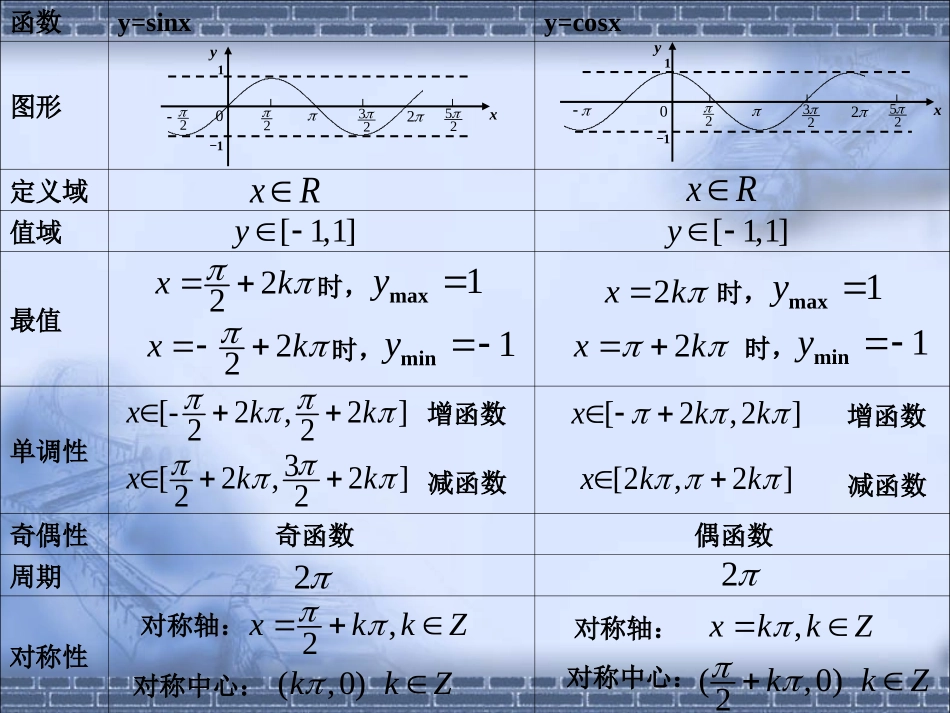 函数 y=sinx y=cosx
图形
y 1 -π/2 0 π/2 π 3π/2 2π 5π/2 x −1
y 1 -π 0 π/2 π 3π/2 2π 5π/2 x −1
定义域 x∈R x∈R
值域 y∈[-1,1] y∈[-1,1]
最值
x=π/2+2kπ时，ymax=1 x=2kπ 时，ymax=1
x=-π/2+2kπ时，ymin=-1 x=π+2kπ 时，ymin=-1
单调性
x∈[-π/2+2kπ,π/2+2kπ] 增函数 x∈[-π+2kπ,2kπ] 增函数
x∈[π/2+2kπ,3π/2+2kπ] 减函数 x∈[2kπ,π+2kπ] 减函数
奇偶性 奇函数 偶函数
周期 2π 2π
对称性
对称轴：x=π/2+kπ,k∈Z 对称轴： x=kπ,k∈Z
对称中心： (kπ,0) k∈Z 对称中心：(π/2+kπ,0) k∈Z